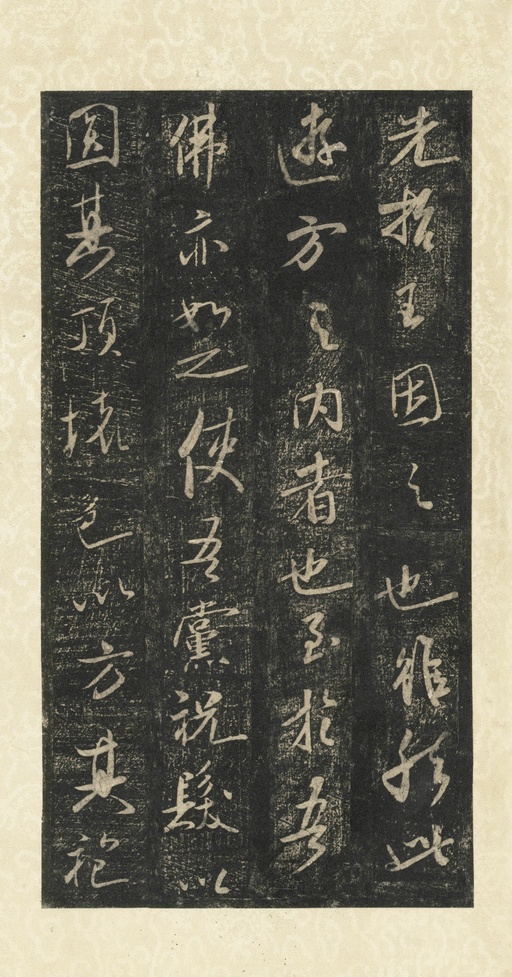 先招王因之也雖然此
遊方之内者也至於吾
佛亦如之使吾黨祝髮以
圆其頂壞色以方其袍